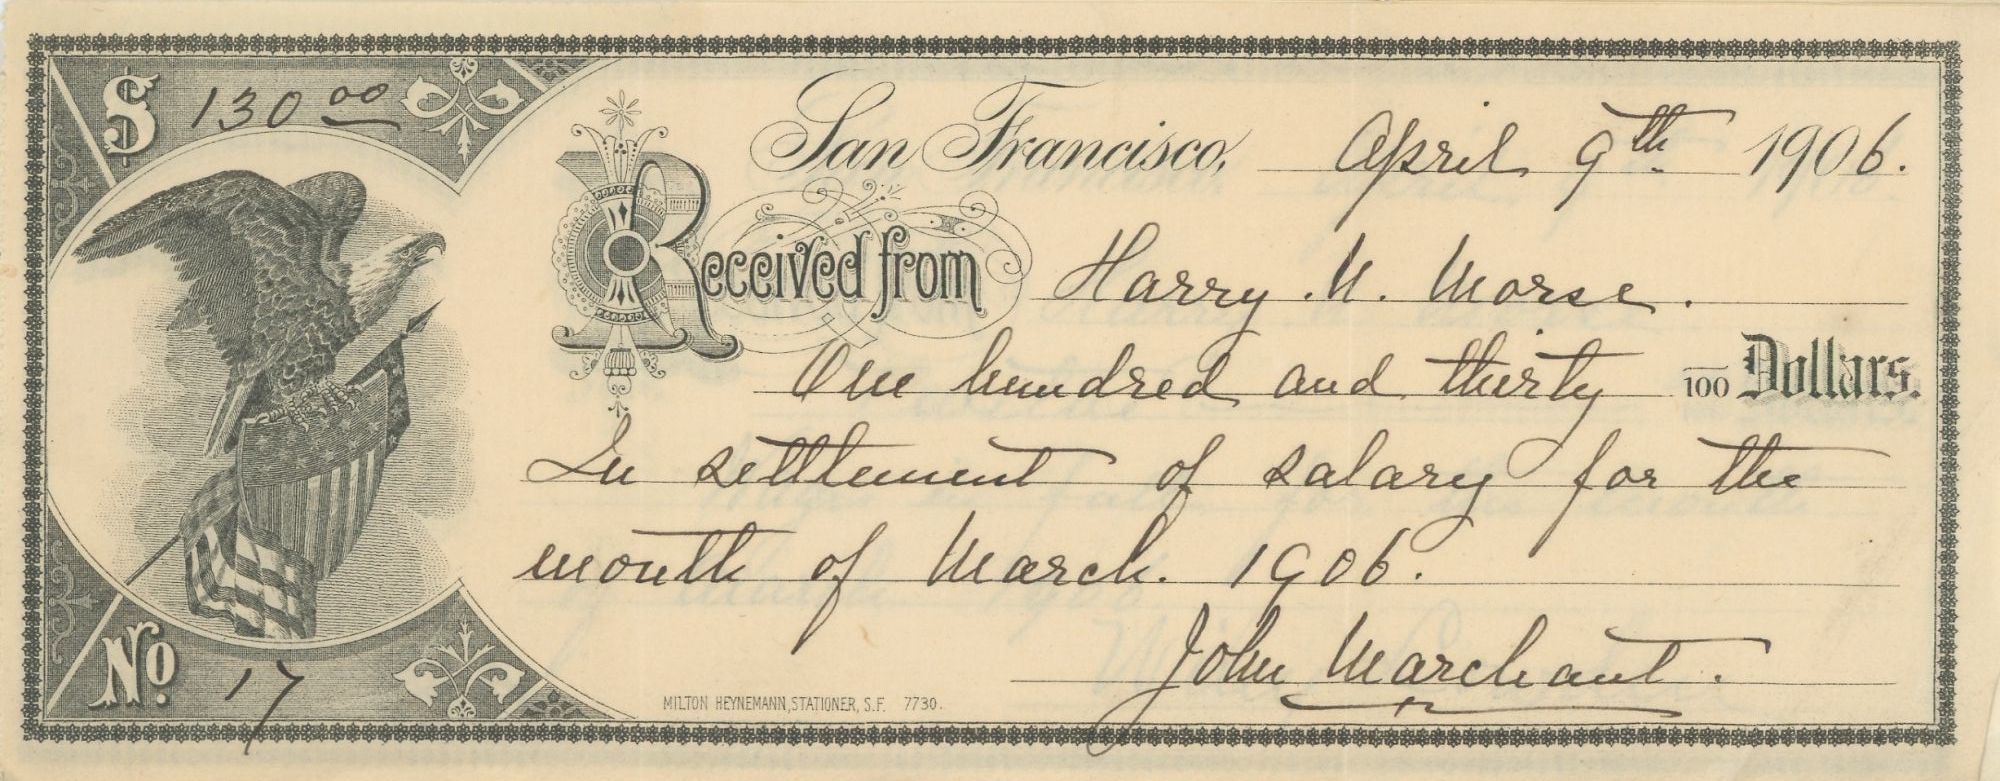 $ 130 00
San Francisco, April 9th 1906.
Received from Harry . N. Morse .
One hundred and thirty /100 Dollars.
In settlement of salary for the
month of March. 1906.
John Marchant.
No. 17
MILTON HEYNEMANN, STATIONER, S.F. 7730.